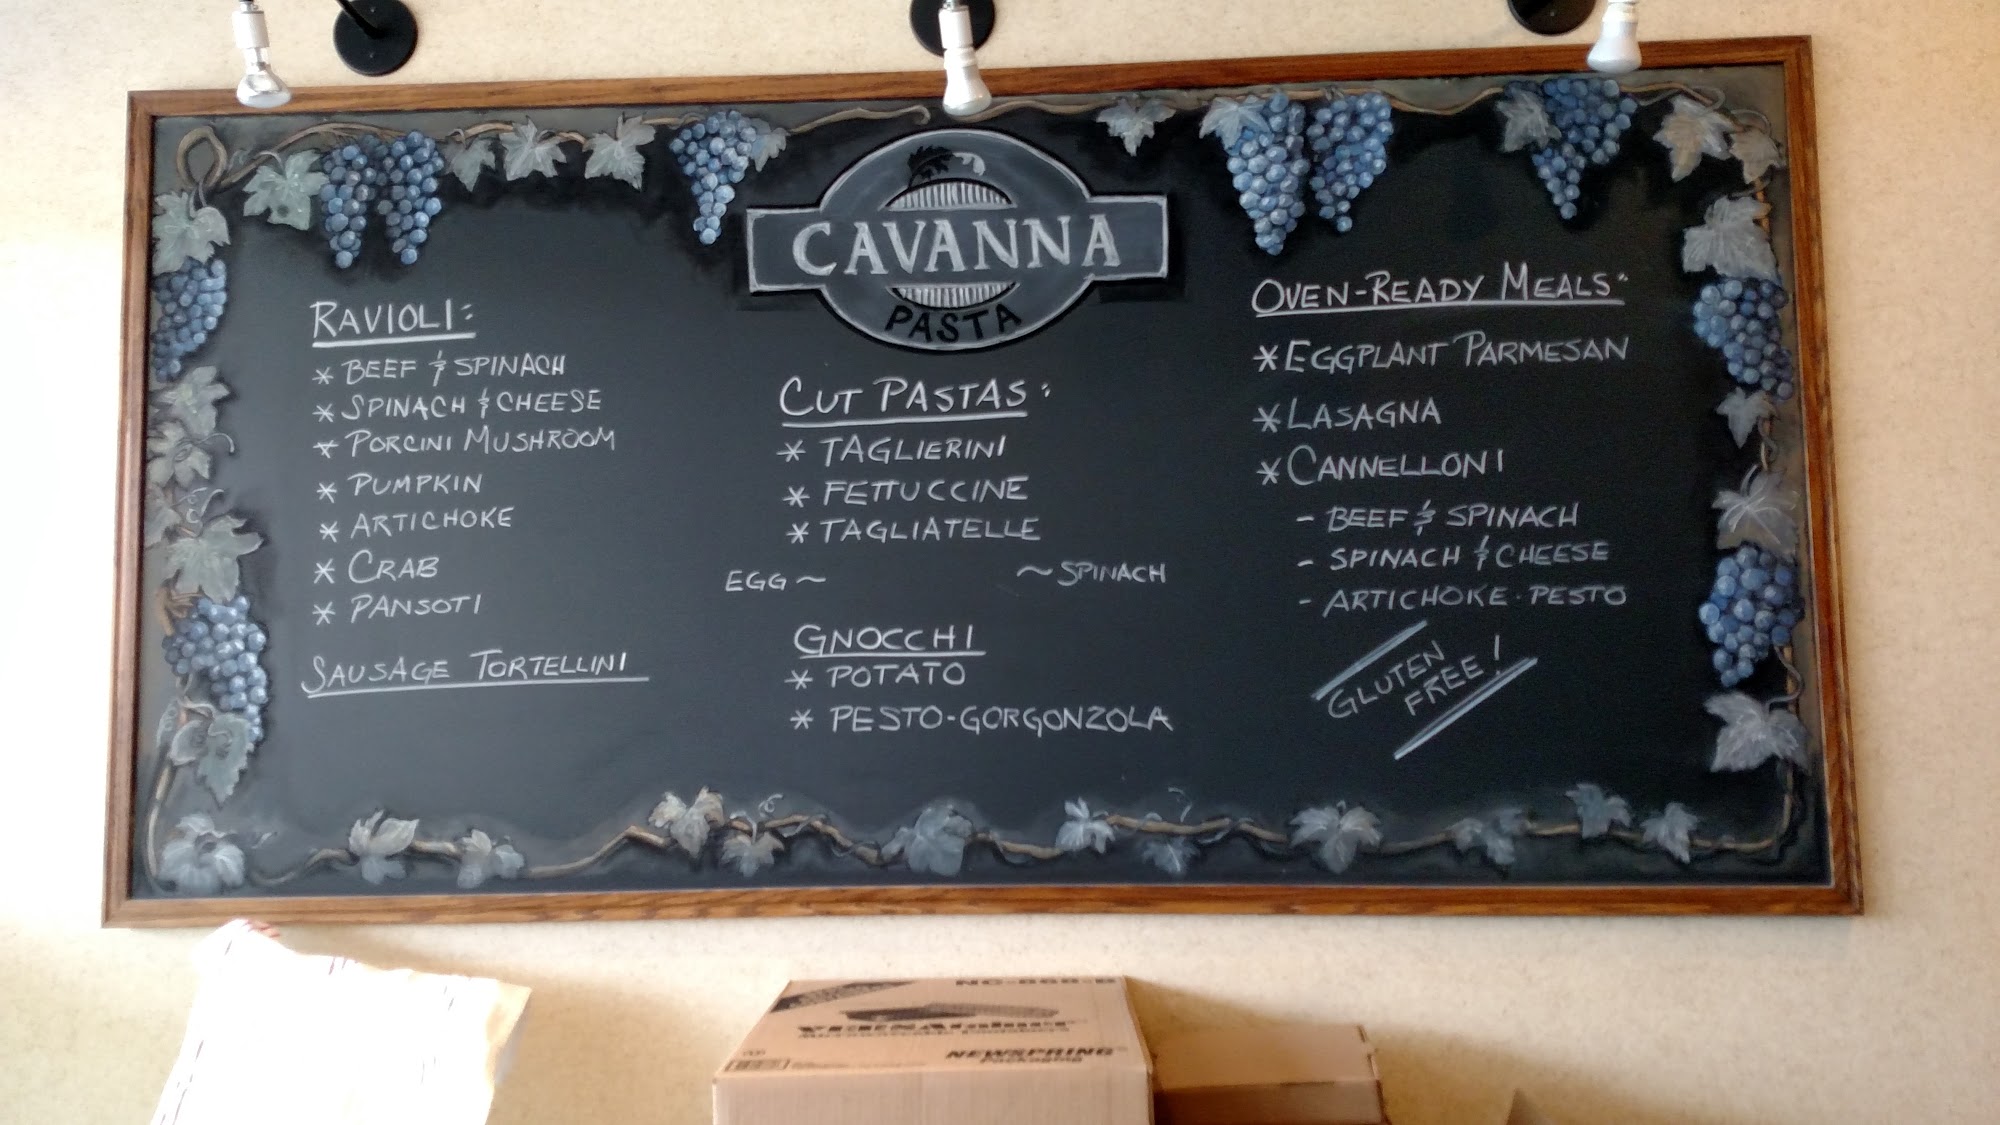 CAVANNA
PASTA
RAVIOLI:
* BEEF & SPINACH
* SPINACH & CHEESE
* PORCINI MUSHROOM
* PUMPKIN
* ARTICHOKE
* CRAB
* PANSOTI
SAUSAGE TORTELLINI
CUT PASTAS:
* TAGLIERINI
* FETTUCCINE
* TAGLIATELLE
EGG ~ ~ SPINACH
GNOCCHI
* POTATO
* PESTO-GORGONZOLA
OVEN-READY MEALS:
* EGGPLANT PARMESAN
* LASAGNA
* CANNELLONI
- BEEF & SPINACH
- SPINACH & CHEESE
- ARTICHOKE·PESTO
GLUTEN
FREE!
NC-868-B
VERSAtainer
NEWSPRING
Packaging